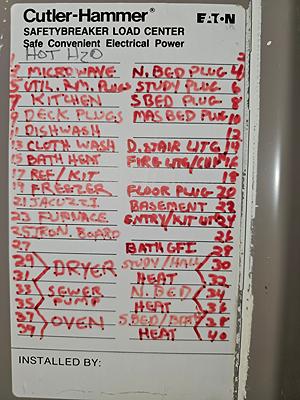 Cutler-Hammer® EATON
SAFETYBREAKER LOAD CENTER
Safe Convenient Electrical Power
HOT H2O
MICROWAVE N. BED PLUG 4
5 UTIL. RM. PLUGS STUDY PLUG 6
7 KITCHEN S BED PLUG 8
9 DECK PLUGS MAS BED PLUG 10
11 DISHWASH 12
13 CLOTH WASH D.STAIR LITG 14
15 BATH HEAT FIRE LITG/ 16
17 REF/KIT 18
19 FREEZER FLOOR PLUG 20
21 JACUZZI BASEMENT 22
23 FURNACE ENTRY/KIT LIT 24
25 IRON. BOARD 26
27 BATH GFI 28
29 DRYER STUDY/HALL 30
31 HEAT 32
33 SEWER N. BED 34
35 PUMP HEAT 36
37 OVEN S.BED/BATH 38
39 HEAT 40
INSTALLED BY: